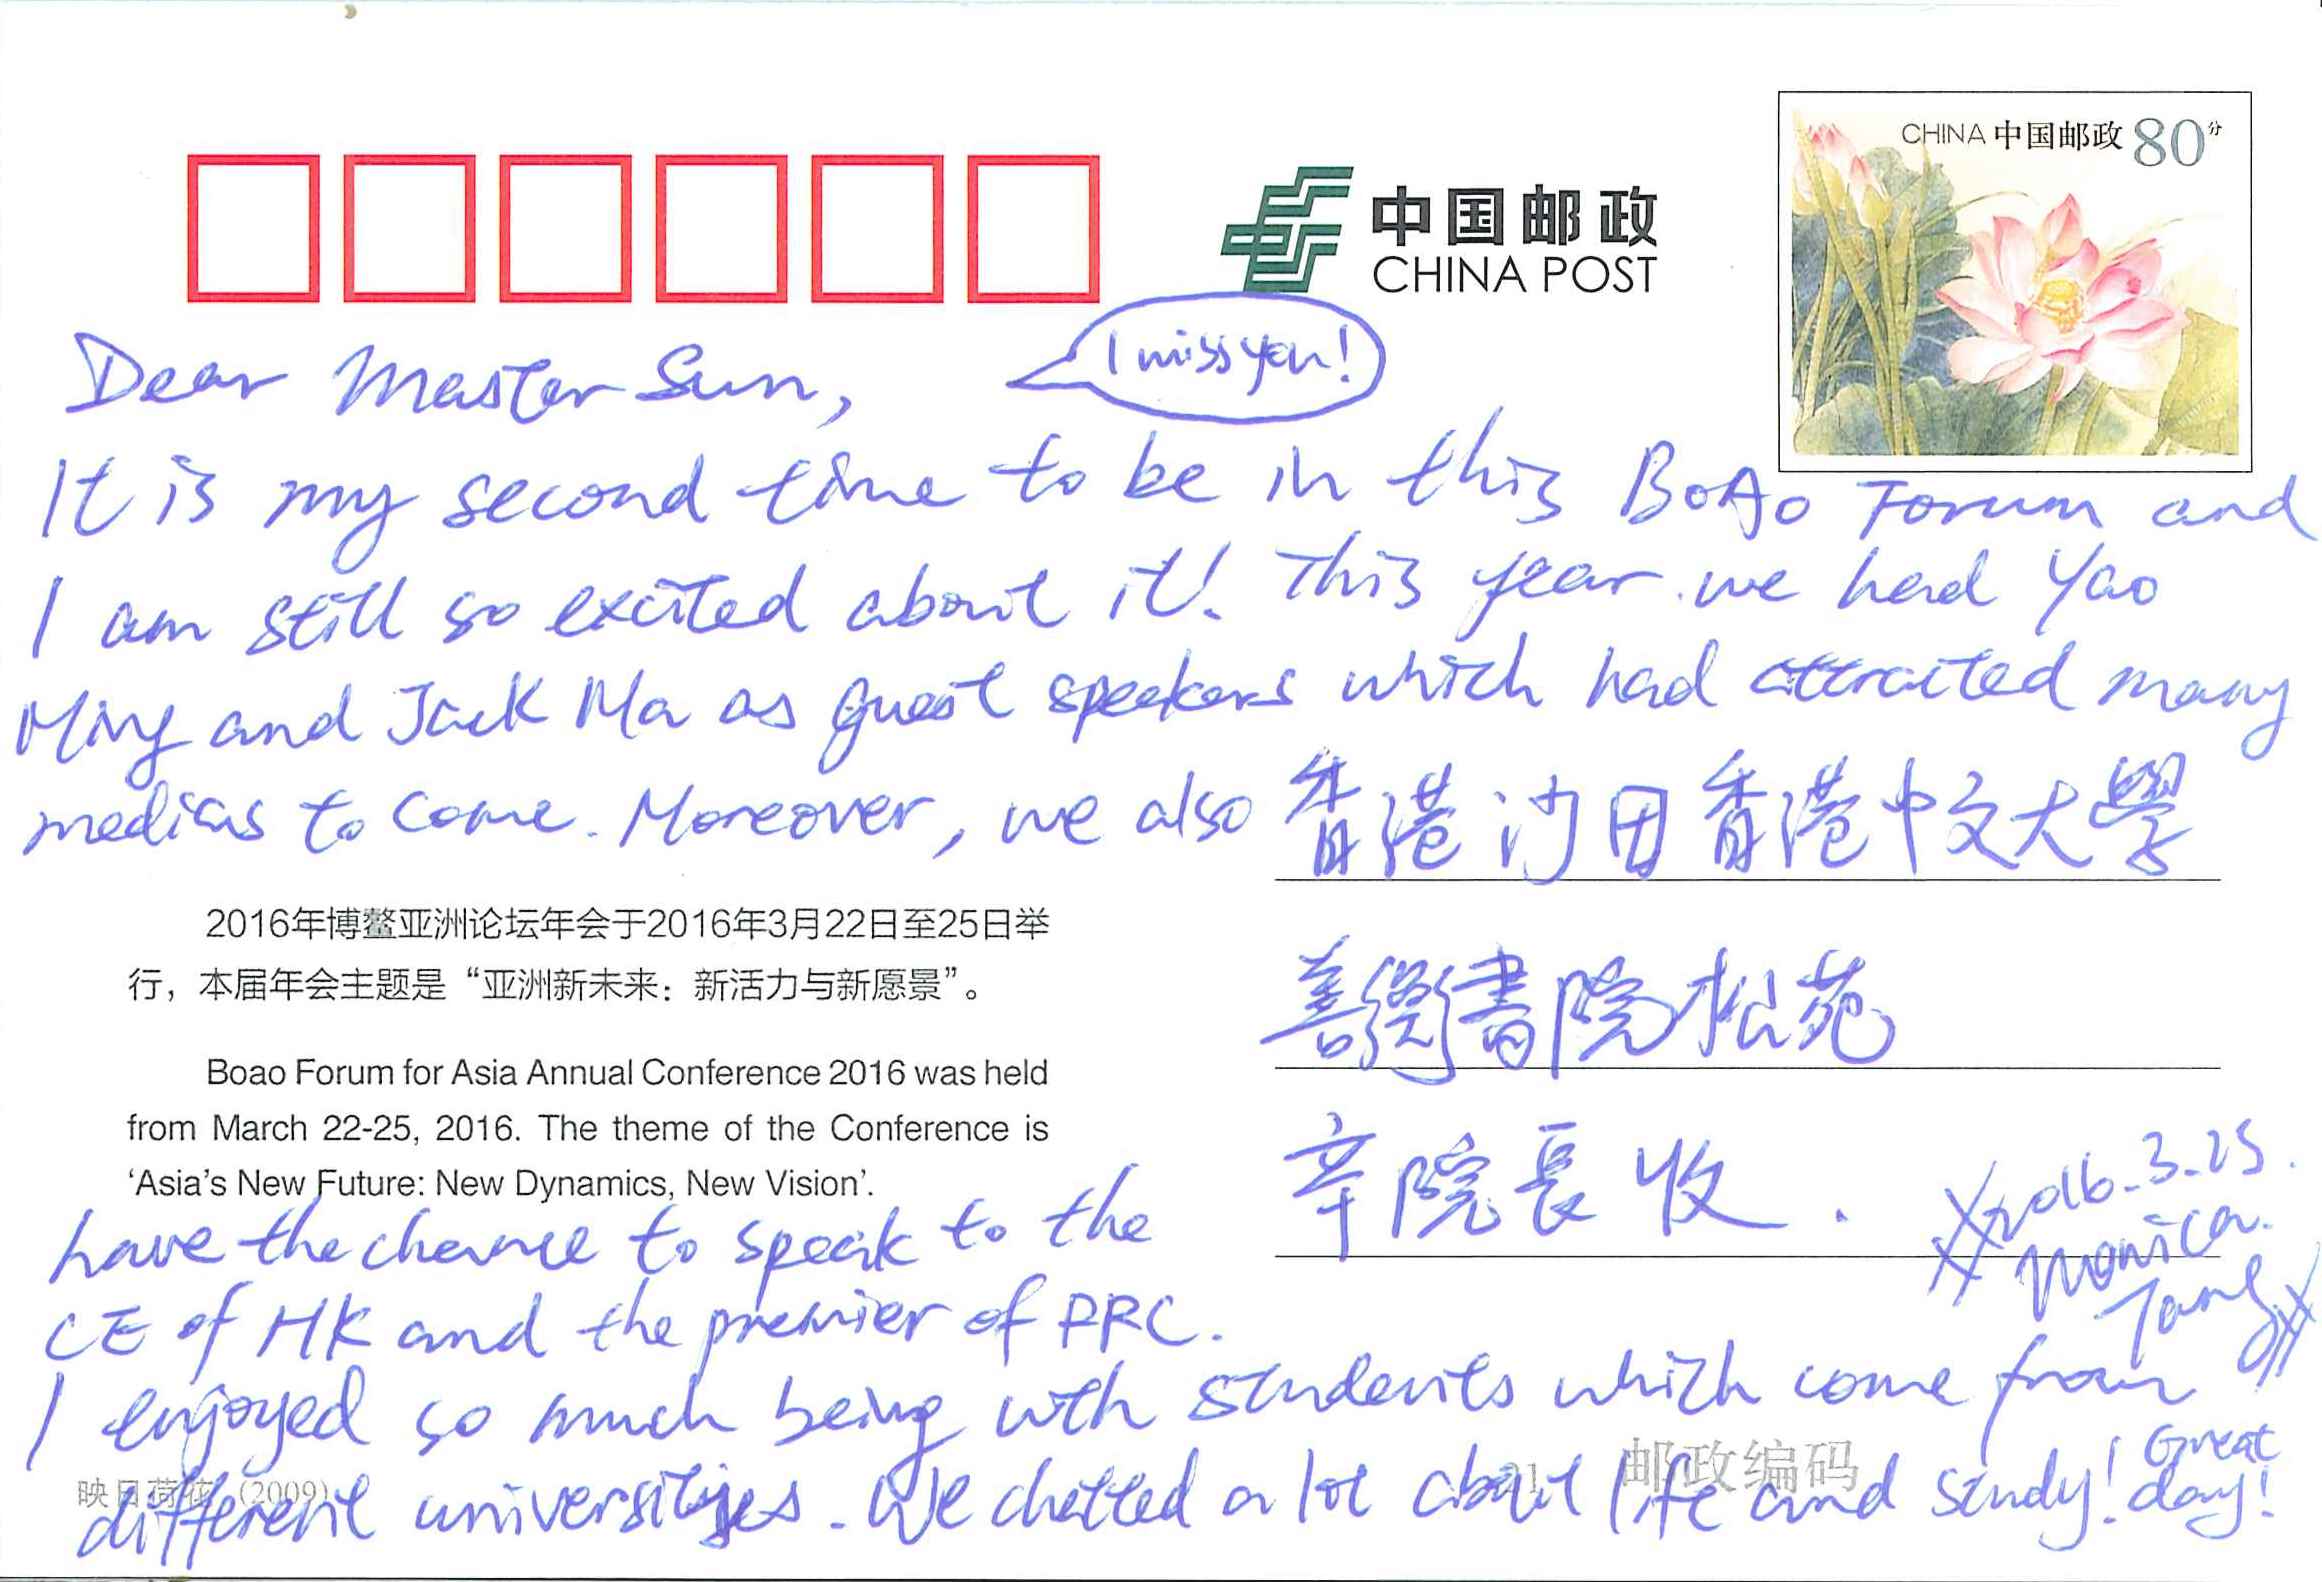 CHINA 中国邮政 80分
中国邮政
CHINA POST
I miss you!
Dear Master Sun,
It is my second time to be in this BoAo Forum and
I am still so excited about it! This year we had Yao
Ming and Jack Ma as guest speakers which had attracted many
medias to come. Moreover, we also
香港沙田香港中文大學
善衡書院松苑
辛院長收.
2016年博鳌亚洲论坛年会于2016年3月22日至25日举
行，本届年会主题是“亚洲新未来：新活力与新愿景”。
Boao Forum for Asia Annual Conference 2016 was held
from March 22-25, 2016. The theme of the Conference is
‘Asia's New Future: New Dynamics, New Vision’.
2016.3.25.
Monica.
Tang
have the chance to speak to the
CE of HK and the premier of PRC.
I enjoyed so much being with students which come from
different universities. We chatted a lot about life and study! Great
day!
映日荷花 (2009)
邮政编码